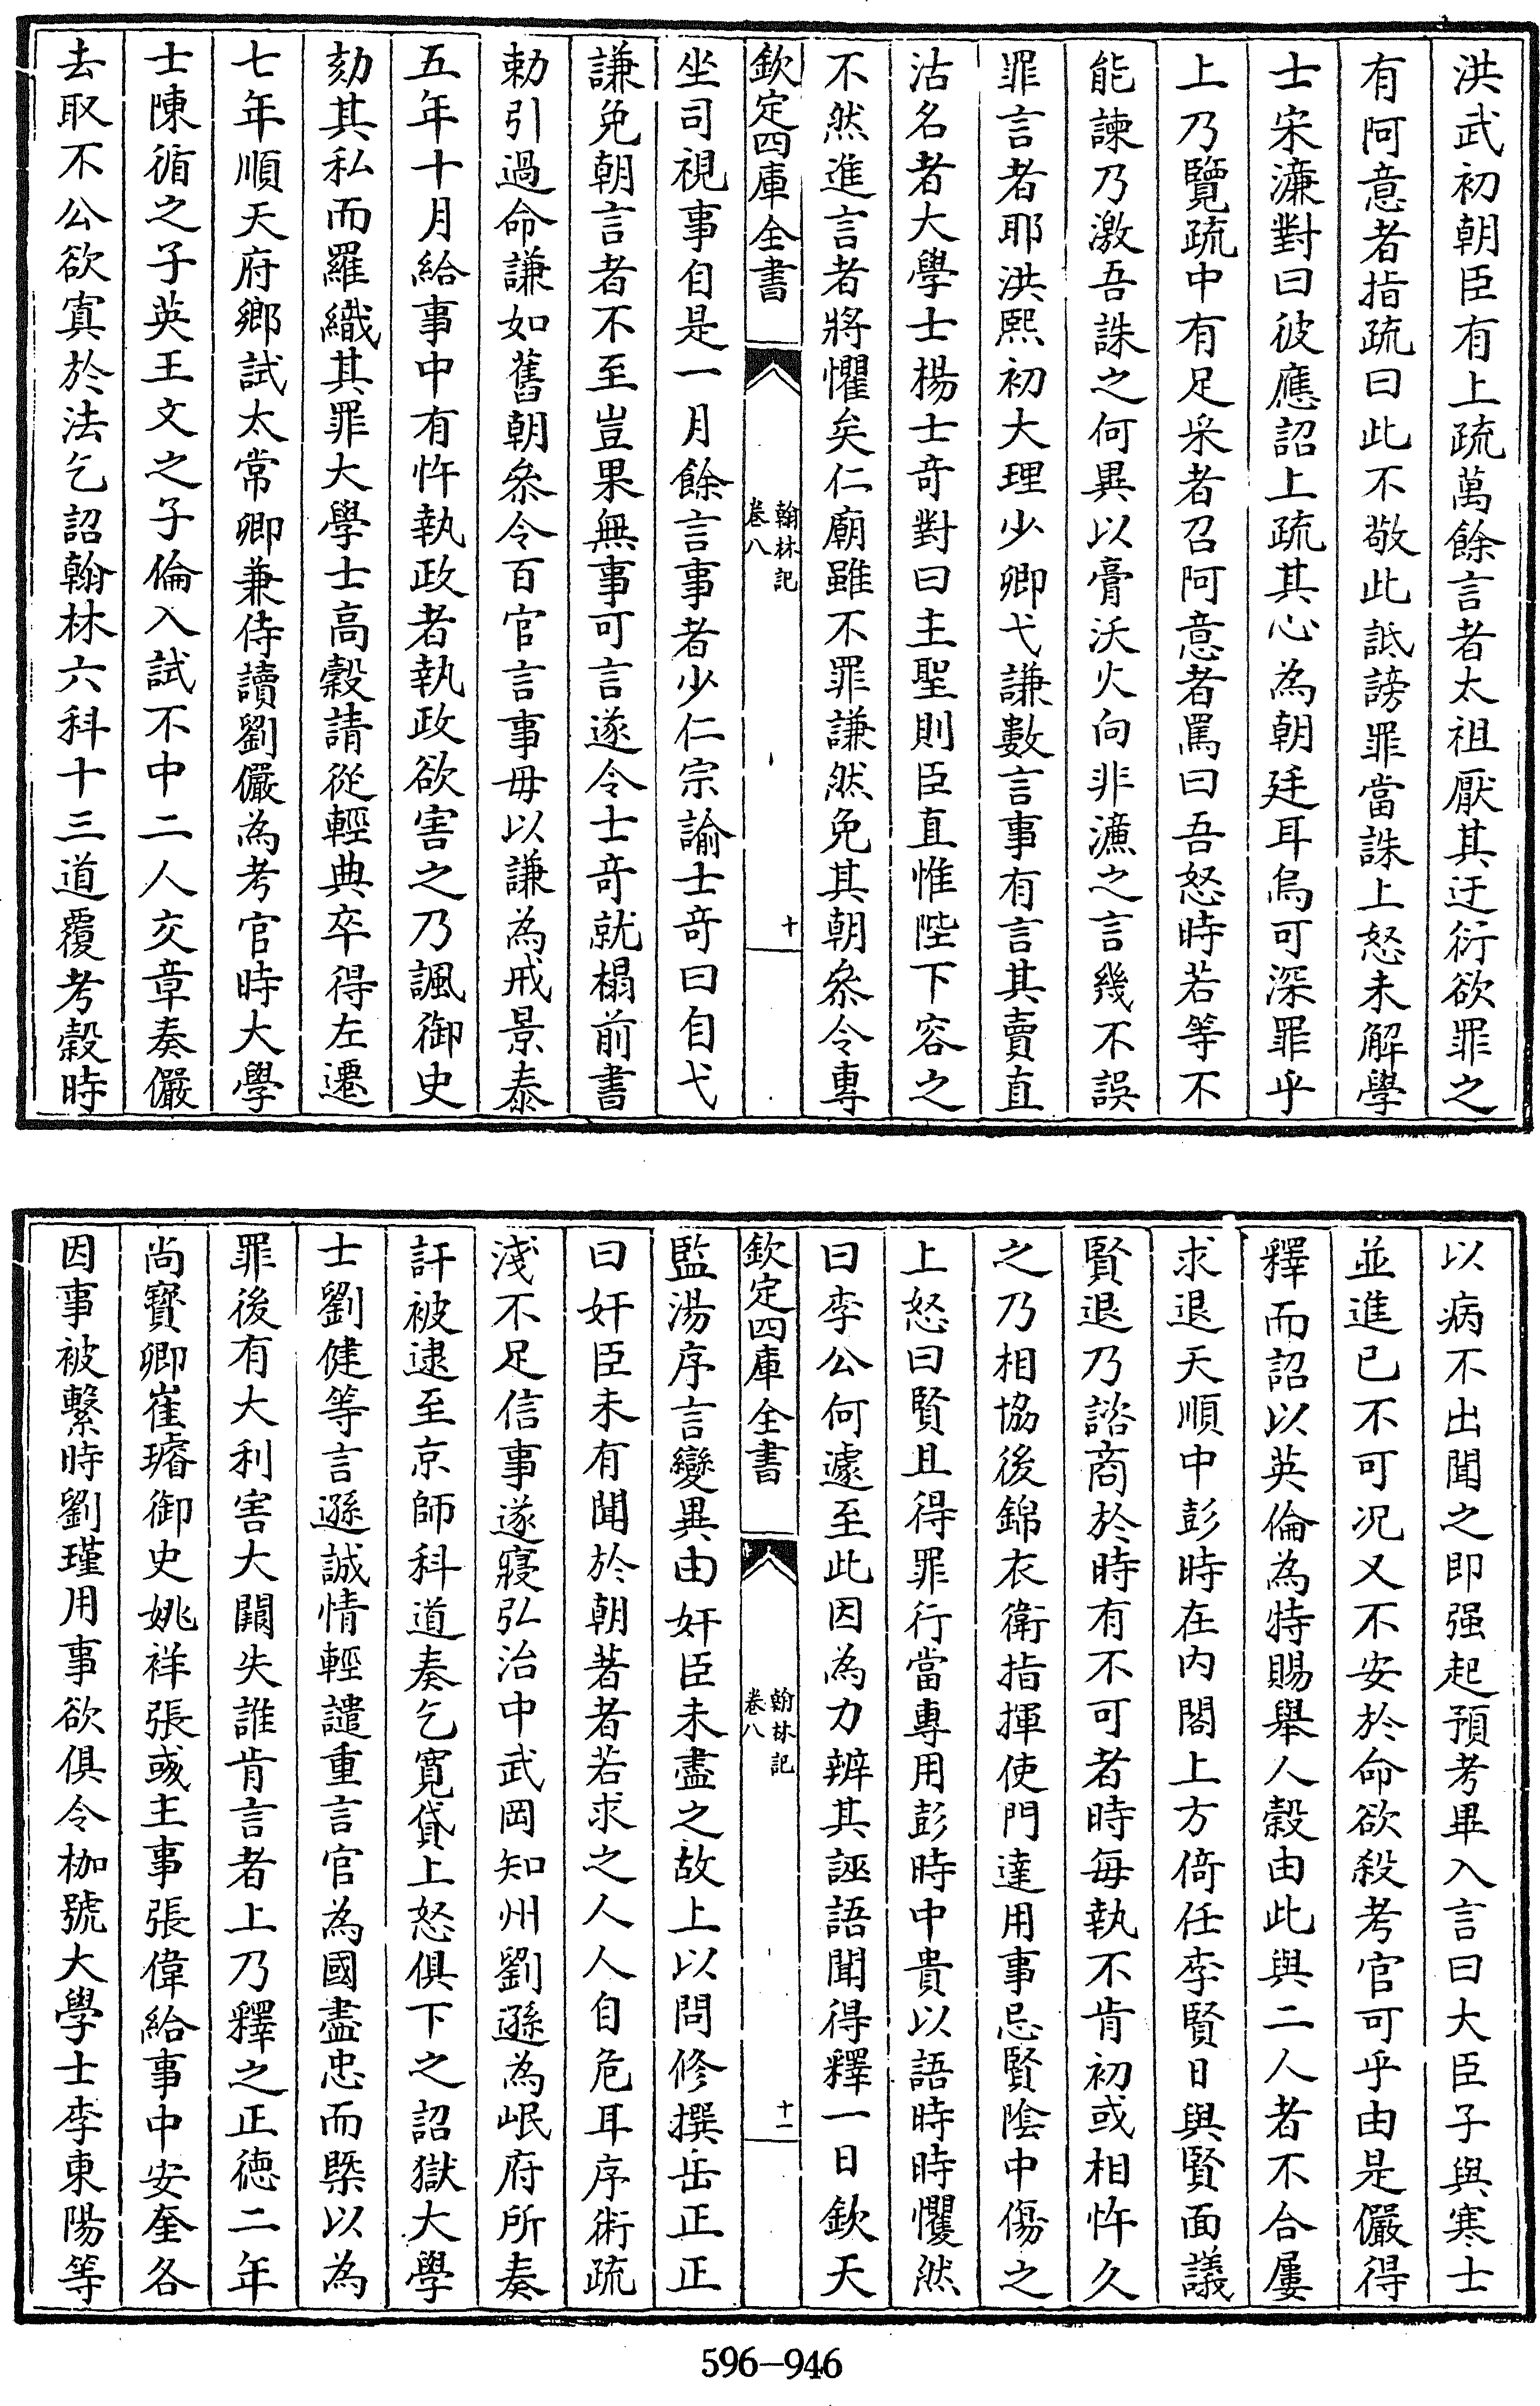 洪武初朝臣有上疏萬餘言者太祖厭其迂衍欲罪之
有阿意者指疏曰此不敬此詆謗罪當誅上怒未解學
士宋濂對曰彼應詔上疏其心為朝廷耳烏可深罪乎
上乃覽疏中有足采者召阿意者罵曰吾怒時若等不
能諫乃激吾誅之何異以膏沃火向非濂之言幾不誤
罪言者耶洪熙初大理少卿弋謙數言事有言其賣直
沽名者大學士楊士奇對曰主聖則臣直惟陛下容之
不然進言者將懼矣仁廟雖不罪謙然免其朝叅令專
欽定四庫全書
翰林記
卷八
十
坐司視事自是一月餘言事者少仁宗諭士奇曰自弋
謙免朝言者不至豈果無事可言遂令士奇就榻前書
勅引過命謙如舊朝叅令百官言事毋以謙為戒景泰
五年十月給事中有忤執政者執政欲害之乃諷御史
劾其私而羅織其罪大學士高穀請從輕典卒得左遷
七年順天府鄉試太常卿兼侍讀劉儼為考官時大學
士陳循之子英王文之子倫入試不中二人交章奏儼
去取不公欲寘於法乞詔翰林六科十三道覆考穀時
以病不出聞之即强起預考畢入言曰大臣子與寒士
並進已不可况又不安於命欲殺考官可乎由是儼得
釋而詔以英倫為特賜舉人穀由此與二人者不合屢
求退天順中彭時在内閣上方倚任李賢日與賢面議
賢退乃諮商於時有不可者時每執不肯初或相忤久
之乃相協後錦衣衛指揮使門達用事忌賢陰中傷之
上怒曰賢且得罪行當專用彭時中貴以語時時懼然
曰李公何遽至此因為力辨其誣語聞得釋一日欽天
欽定四庫全書
翰林記
卷八
十一
監湯序言變異由奸臣未盡之故上以問修撰岳正正
曰奸臣未有聞於朝著者若求之人人自危耳序術疏
淺不足信事遂寢弘治中武岡知州劉遜為岷府所奏
訐被逮至京師科道奏乞寛貸上怒俱下之詔獄大學
士劉健等言遜誠情輕譴重言官為國盡忠而槩以為
罪後有大利害大闕失誰肯言者上乃釋之正德二年
尚寳卿崔璿御史姚祥張彧主事張偉給事中安奎各
因事被繫時劉瑾用事欲俱令枷號大學士李東陽等
596-946